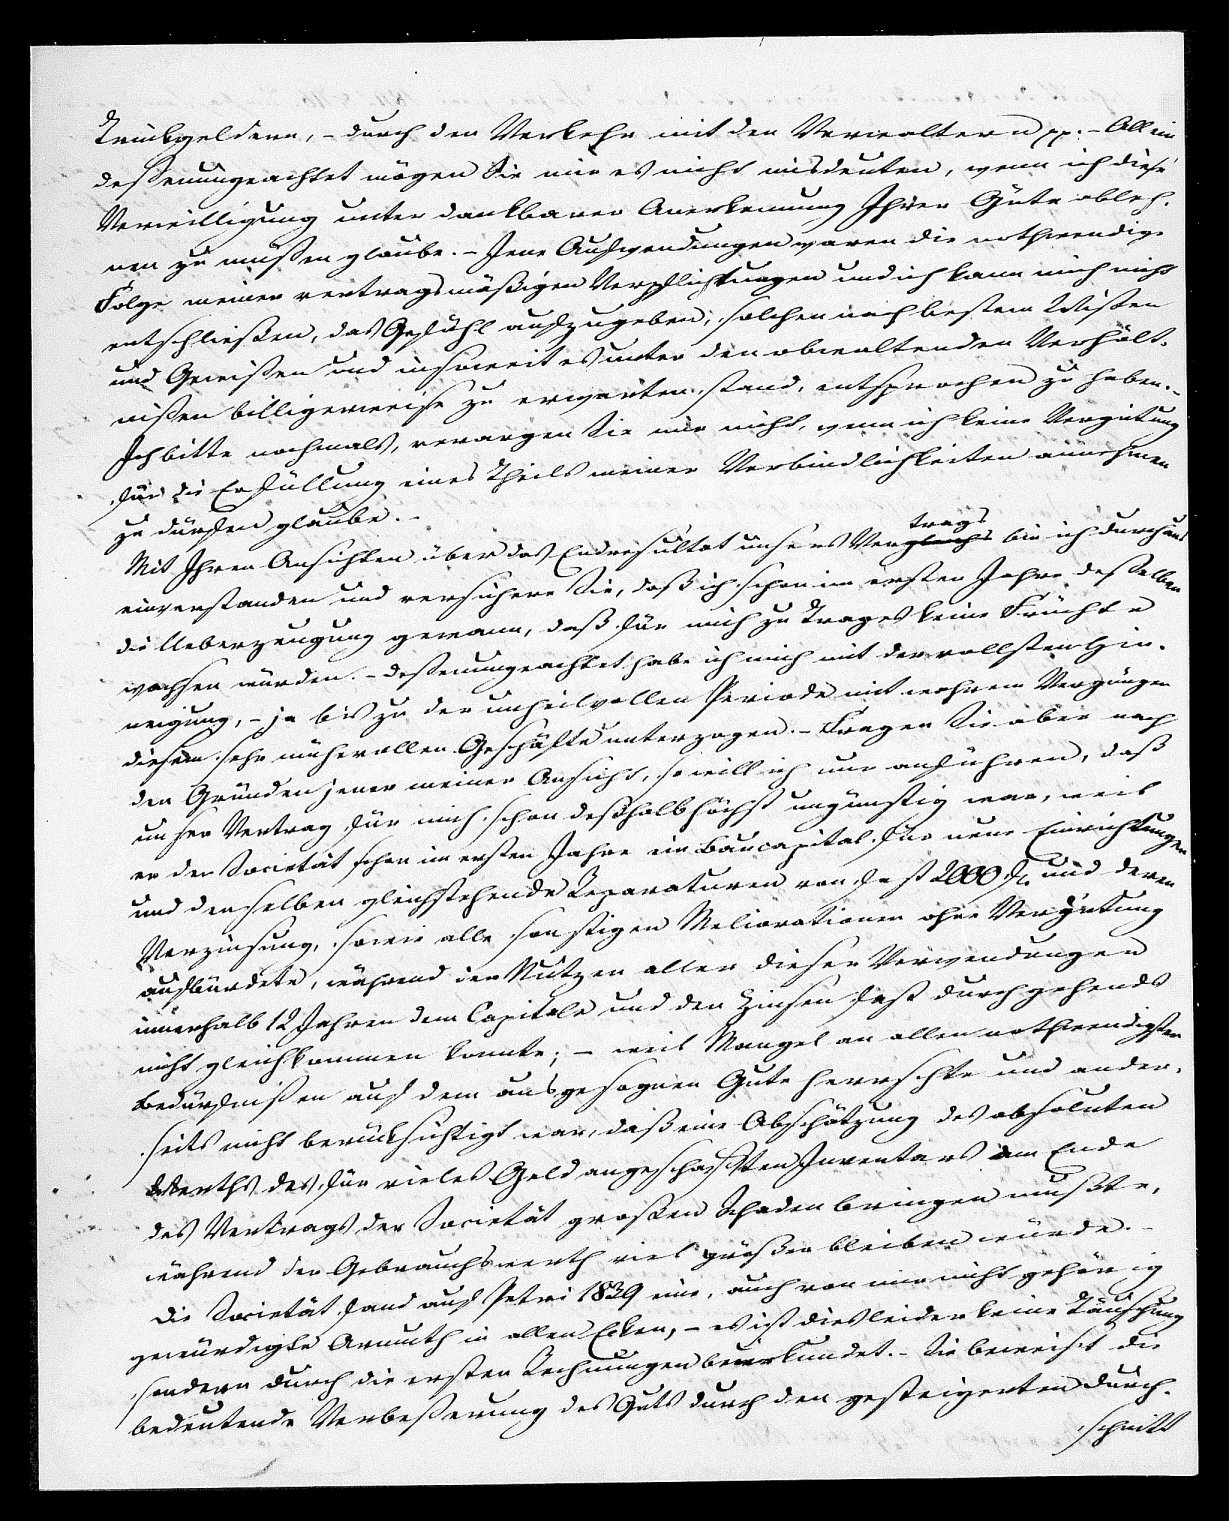 Trinkgeldern, - durch den Verkehr mit den Verwaltern pp. - Allein
deßenungeachtet mögen Sie mir es nicht misdeuten, wenn ich diese
Verwilligung unter dankbarer Anerkennung Ihrer Güte ableh-
nen zu müßen glaube. - Jene Aufwendungen waren die nothwendige
Folge meiner vertragsmäßigen Verpflichtungen und ich kann mich nicht
entschließen, das Gefühl aufzugeben, solchen nach bestem Wißen
und Gewißen und insoweit es unter den obwaltenden Verhält-
nißen billigerweise zu erwarten stand, entsprochen zu haben. -
Ich bitte nochmals, verargen Sie mir nicht, wenn ich keine Vergütung
für die Erfüllung eines Theils meiner Verbindlichkeiten annehmen
zu dürfen glaube. -
Mit Ihren Ansichten über das Endresultat unsers Vergleichs trags bin ich durchaus
einverstanden und versichere Sie, daß ich schon im ersten Jahre desselben
die Ueberzeugung gewann, daß für mich zu Trages keine Früchte
wachsen würden. - deßenungeachtet habe ich mich mit der vollsten Hin-
neigung, - ja bis zu der unheilvollen Periode mit wahrem Vergnügen
diesem sehr mühevollen Geschäfte unterzogen. - Fragen Sie aber nach
den Gründen jener meiner Ansicht, so will ich nur anführen, daß
unser Vertrag für mich schon deßhalb höchst ungünstig war, weil
er der Societät schon im ersten Jahre ein Baucapital für neue Einrichtungen
und denselben gleichstehende Reparaturen von fast 2000 fl. und deren
Verzinsung, sowie alle sonstigen Meliorationen ohne Vergütung
aufbürdete, während der Nutzen aller dieser Verwendungen
innerhalb 12 Jahren dem Capitale und den Zinsen fast durchgehends
nicht gleichkommen konnte; - weil Mangel an allen nothwendigsten
Bedürfnißen auf dem ausgesognen Gute herrschte und ander-
seits nicht berücksichtigt war, daß eine Abschätzung des absoluten
Werths des für vieles Geld angeschafften Inventars am Ende
des Vertrags der Societät großen Schaden bringen mußte,
während der Gebrauchswerth viel größer bleiben würde. -
Die Societät fand auf Petri 1829 eine, auch von mir nicht gehörig
gewürdigte Armuth in allen Ecken, - es ist dies leider keine Täuschung
sondern durch die ersten Rechnungen beurkundet. - Sie beweist die
bedeutende Verbeßerung des Guts durch den gesteigerten Durch-
schnitt